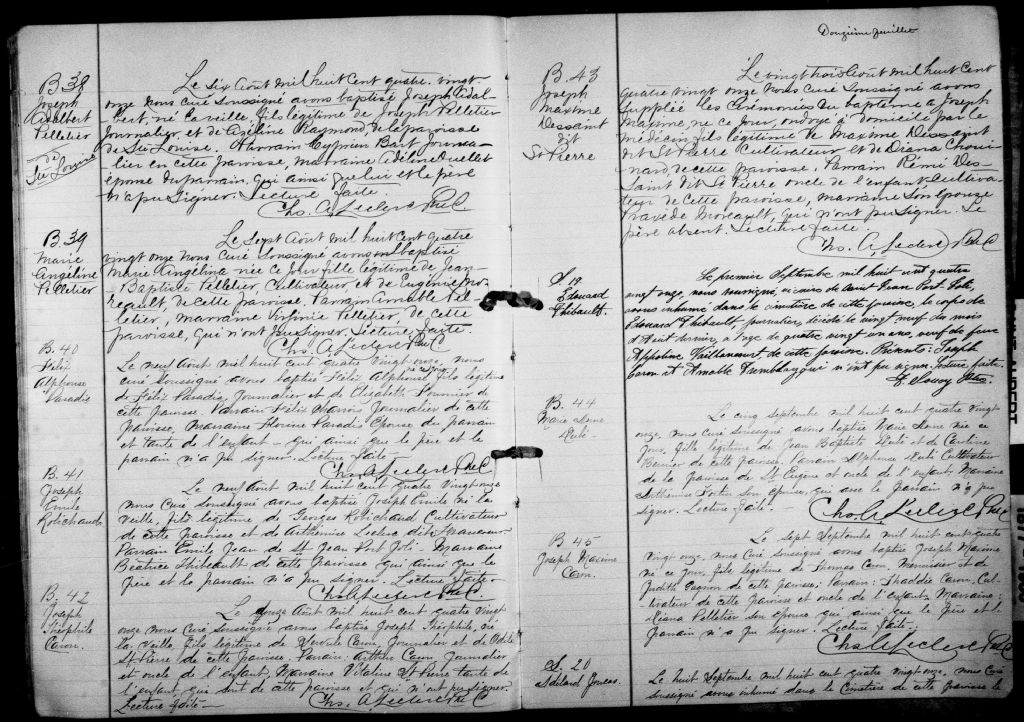 B. 38
Joseph
Adalbert
Pelletier
de
Ste Louise
Le Six Août mil huit Cent quatre-vingt-
onze Nous Curé Soussigné avons baptisé Joseph Adal-
bert, né la veille, fils légitime de Joseph Pelletier
Journalier, et de Azéline Raymond, de la paroisse
de Ste Louise. Parrain Cyprien Bart Journa-
lier en cette paroisse, marraine Adiline Ouellet
épouse du parrain, qui ainsi que lui et le père
n'a pu signer. Lecture faite.
Chs. A. Leclerc Ptre C.
B. 39
Marie
Angéline
Pelletier
Le Sept Août mil huit Cent quatre
vingt onze Nous Curé Soussigné avons baptisé
Marie Angélina née ce jour fille légitime de Jean-
Baptiste Pelletier, Cultivateur, et de Eugénie Mo-
reault, de cette paroisse. Parrain Amable Pel-
letier, marraine Virginie Pelletier, de cette
paroisse, qui n'ont pu signer. Lecture faite.
Chs. A. Leclerc Ptre C.
B. 40
Félix
Alphonse
Paradis
Le neuf Août mil huit cent quatre vingt onze nous
curé soussigné avons baptisé Félix Alphonse, fils légitime
de Félix Paradis, Journalier et de Elisabeth Fournier de
cette paroisse. Parrain Félix Marois Journalier de cette
paroisse, Marraine Florine Paradis Epouse du parrain
et tante de l'enfant - qui ainsi que le père et le
parrain n'a pu signer. Lecture faite -
Chs. A. Leclerc Ptre C.
B. 41
Joseph
Emile
Robichaud
Le neuf Août mil huit cent quatre vingt onze
nous Curé Soussigné avons baptisé Joseph Emile né la
veille, fils légitime de Georges Robichaud Cultivateur
de cette paroisse et de Arthémise Leclerc dite Francoeur.
Parrain Emile Jean de St Jean Port Joli. Marraine
Béatrice Thibeault de cette paroisse qui ainsi que le
Père et le parrain n'a pu signer. Lecture faite -
Chs. A. Leclerc Ptre C.
B. 42
Joseph
Théophile
Caron.
Le onze Août mil huit cent quatre vingt
onze nous Curé Soussigné avons baptisé Joseph Théophile, né
la veille, fils légitime de Caron Journalier et de
St Pierre de cette paroisse. Parrain: Arthur Caron Journalier
et oncle de l'enfant. Marraine St Pierre tante de
l'enfant, qui sont de cette paroisse et qui n'ont pu signer.
Lecture faite -
Chs. A. Leclerc Ptre C.
Douzième feuillet
B. 43
Joseph
Maxime
Dessaint
dit
St Pierre
Le vingt trois Août mil huit Cent
quatre vingt onze Nous Curé soussigné avons
supplié les Cérémonies du baptême à Joseph
Maxime, né ce jour, ondoyé à domicile par le
médecin, fils légitime de Maxime Dessaint
dit St Pierre Cultivateur et de Diana Choui-
nard, de cette paroisse, Parrain Rémi Des-
saint dit St Pierre oncle de l'enfant Cultiva-
teur de cette paroisse, marraine Son épouse
Moreault, qui n'ont pu signer. Le
père absent. Lecture faite.
Chs. A. Leclerc Ptre C
S. 19
Edouard
Thibault.
Le premier Septembre mil huit cent quatre
vingt onze, nous soussigné, vicaire de Saint Jean Port Joli,
avons inhumé dans le cimetière de cette paroisse, le corps de
Edouard Thibault, journalier, décédé le vingt neuf du mois
d'Août dernier, à l'âge de quatre vingt un ans, veuf de feue
Appoline Vaillancourt, de cette paroisse. Présents: Joseph
Caron et Amable Tremblay qui n'ont pu signer. Lecture faite.
Ptre.
B. 44
Marie Anne
Le cinq Septembre mil huit cent quatre vingt
onze, nous Curé soussigné avons baptisé Marie Anne née ce
jour, fille légitime de Jean Baptiste et de Caroline
Bernier de cette paroisse. Parrain Alphonse Cultivateur
de la paroisse de St Eugène et oncle de l'enfant, Marraine
Arthémise Fortin son épouse, qui avec le parrain n'a pu
signer. Lecture faite. -
Chs. A. Leclerc Ptre C
B. 45
Joseph Maxime
Caron.
Le Sept Septembre mil huit cent quatre
vingt onze, nous Curé soussigné avons baptisé Joseph Maxime
né ce jour, fils légitime de Thomas Caron, Menuisier et de
Judith Gagnon de cette paroisse; Parrain: Thaddée Caron, Cul-
tivateur de cette Paroisse et oncle de l'enfant. Marraine:
Diana Pelletier son épouse qui ainsi que le père et le
Parrain n'a pu signer. Lecture faite.
Chs. A. Leclerc Ptre C
S. 20
Adélard
Le huit Septembre mil huit cent quatre vingt onze, nous Curé
soussigné avons inhumé dans le Cimetière de cette paroisse le